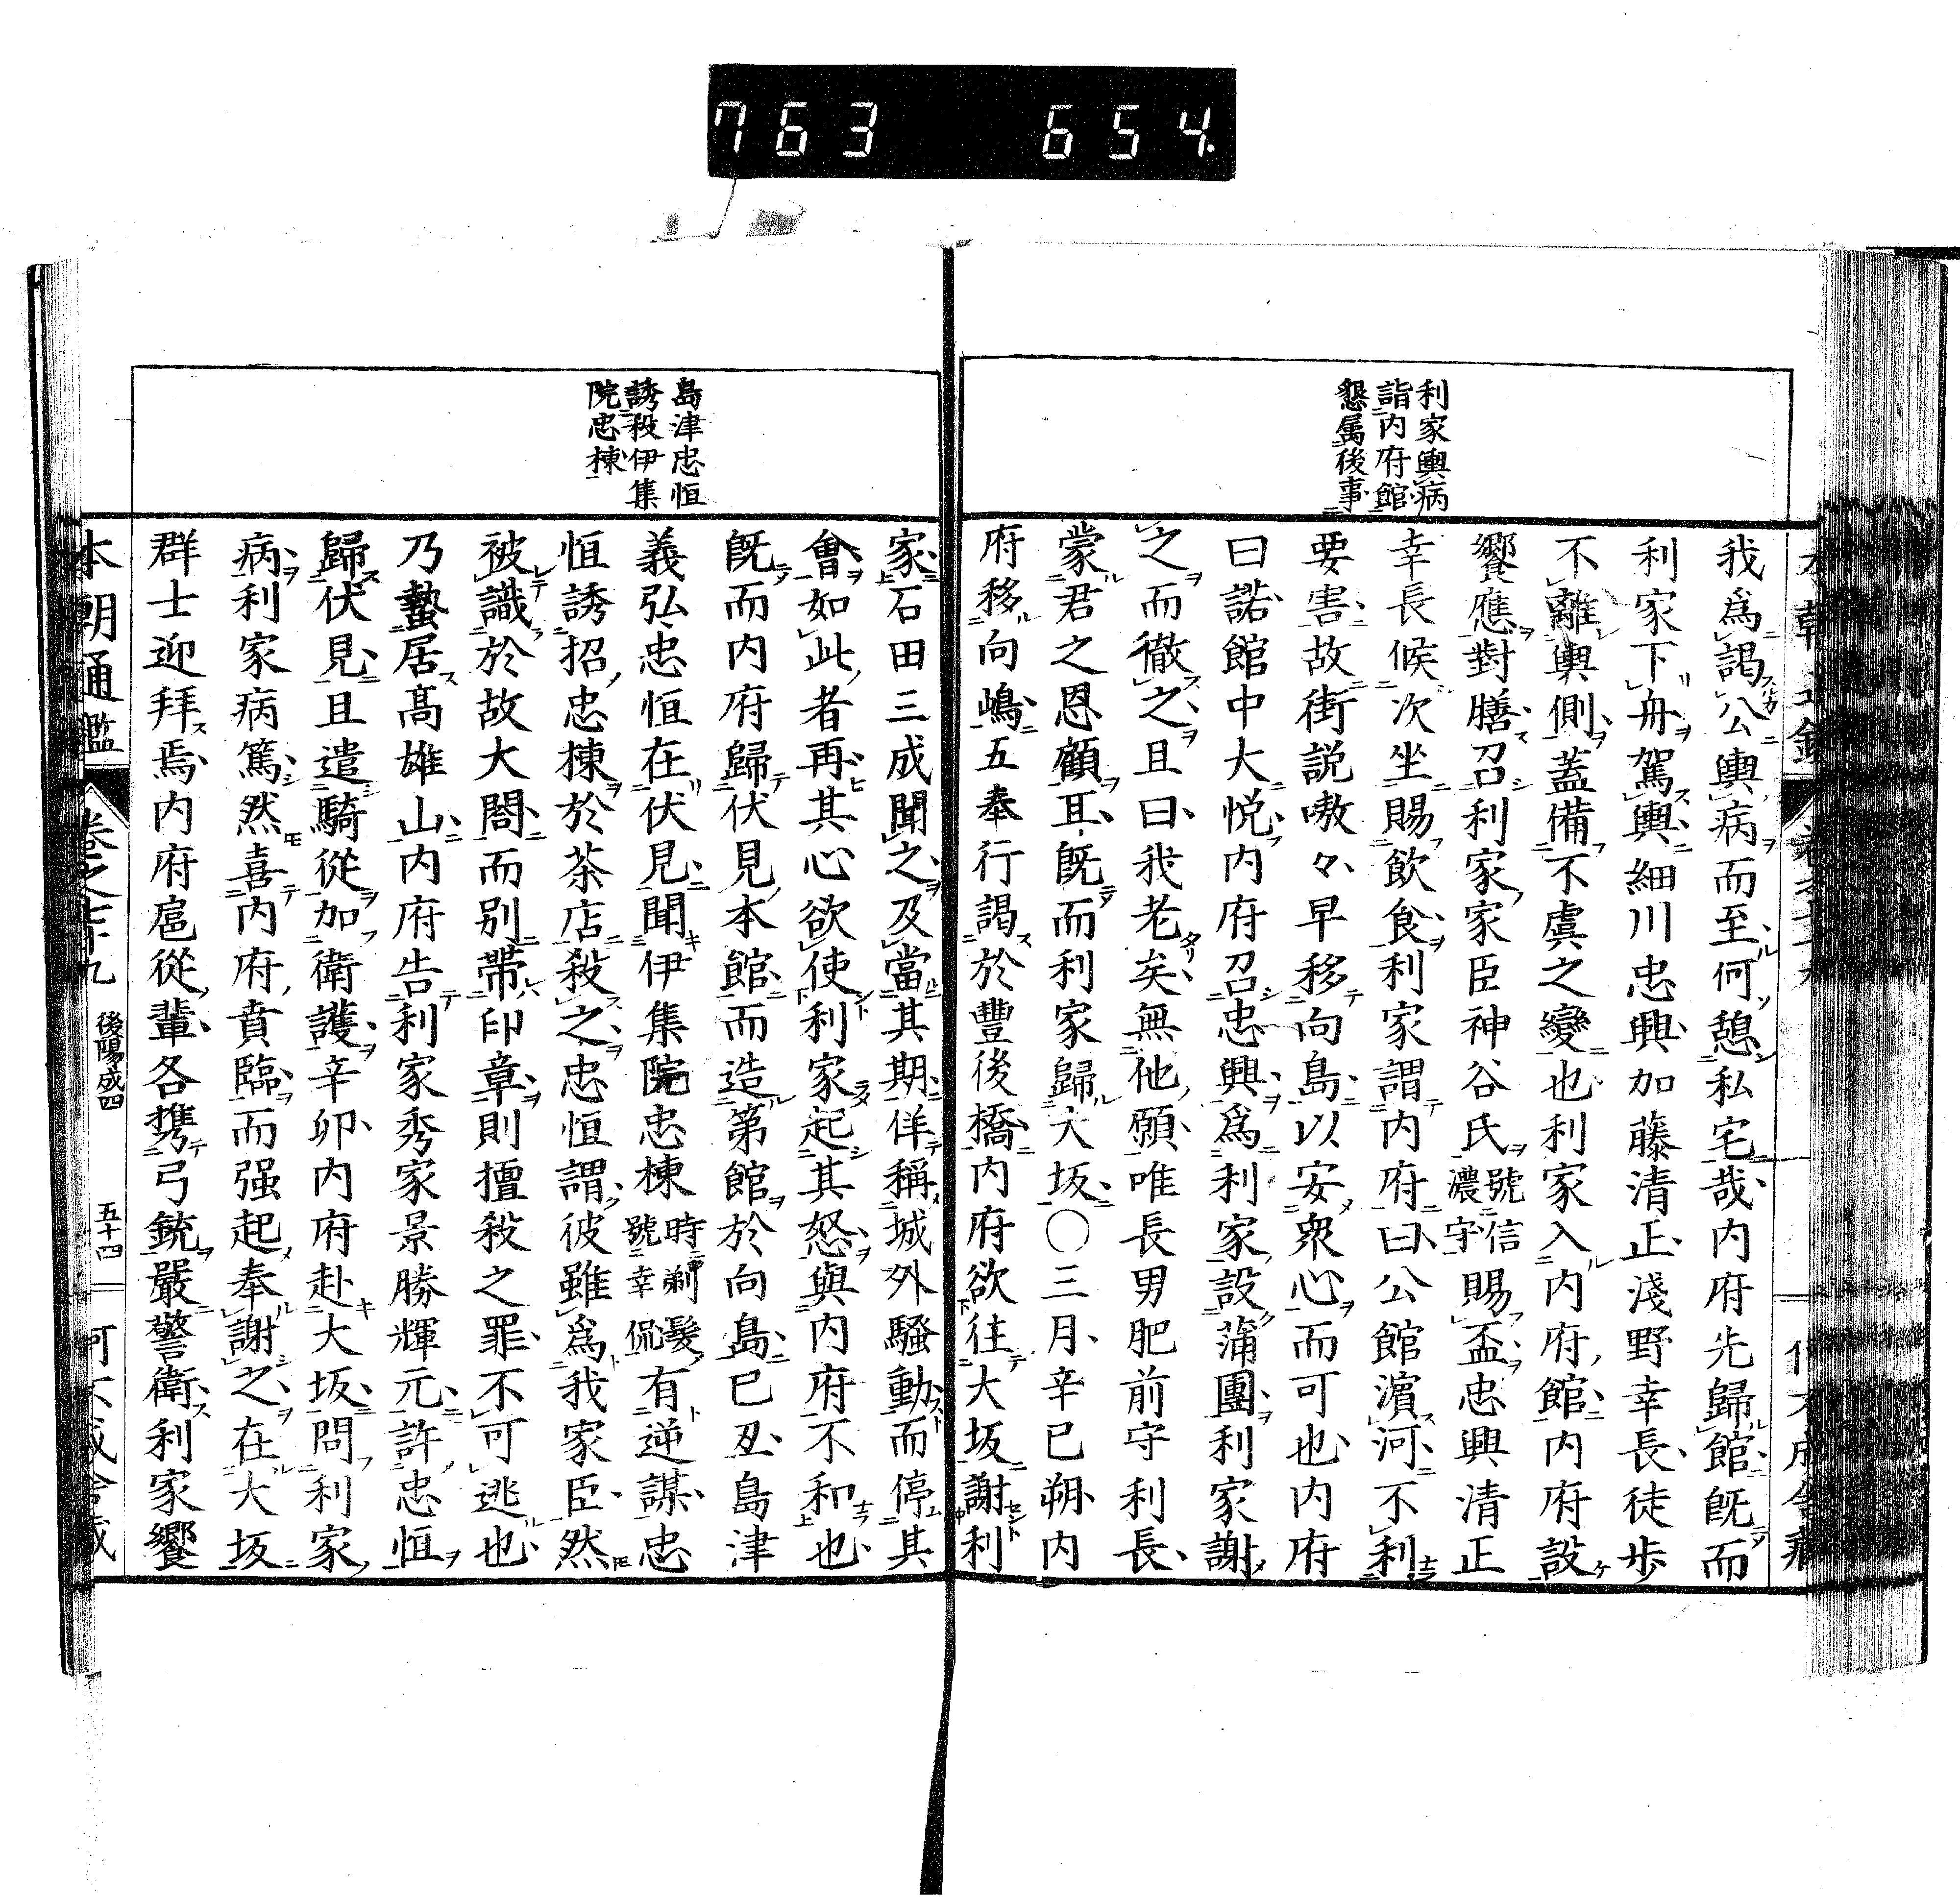 763 654.
利家輿病
詣内府館
懇属後事
我爲謁公輿病而至何憩私宅哉内府先歸館既而
利家下舟駕輿細川忠興加藤清正淺野幸長徒歩
不離輿側蓋備不虞之變也利家入内府館内府設
饗應對膳召利家家臣神谷氏號信濃守賜盃忠興清正
幸長候次坐賜飲食利家謂内府曰公館濵河不利
要害故街説嗷々早移向島以安衆心而可也内府
曰諾館中大悦内府召忠興爲利家設蒲團利家謝
之而徹之且曰我老矣無他願唯長男肥前守利長
蒙君之恩顧耳既而利家歸大坂〇三月辛巳朔内
府移向嶋五奉行謁於豐後橋内府欲往大坂謝利
島津忠恒
誘殺伊集
院忠棟
家石田三成聞之及當其期佯稱城外騷動而停其
會如此者再其心欲使利家起其怒與内府不和也
既而内府歸伏見本館而造第館於向島已丑島津
義弘忠恒在伏見聞伊集院忠棟時剃髮號幸侃有逆謀忠
恒誘招忠棟於茶店殺之忠恒謂彼雖爲我家臣然
被識於故大閤而别帶印章則擅殺之罪不可逃也
乃蟄居髙雄山内府告利家秀家景勝輝元許忠恒
歸伏見且遣騎從加衛護辛卯内府赴大坂問利家
病利家病篤然喜内府賁臨而强起奉謝之在大坂
群士迎拜焉内府扈從輩各携弓銃嚴警衛利家饗
本朝通鑑 卷之七十九 後陽成四 五十四